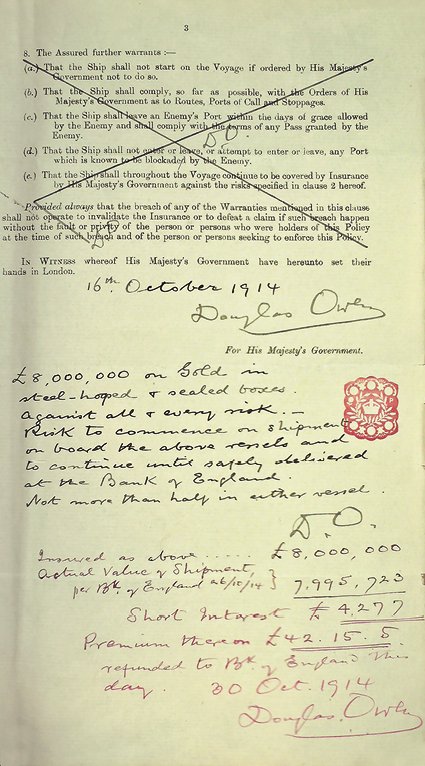 3
8. The Assured further warrants :—
(a.) That the Ship shall not start on the Voyage if ordered by His Majesty's
Government not to do so.
(b.) That the Ship shall comply, so far as possible, with the Orders of His
Majesty's Government as to Routes, Ports of Call and Stoppages.
(c.) That the Ship shall leave an Enemy's Port within the days of grace allowed
by the Enemy and shall comply with the terms of any Pass granted by the
Enemy.
D.O.
(d.) That the Ship shall not enter or leave, or attempt to enter or leave, any Port
which is known to be blockaded by the Enemy.
(e.) That the Ship shall throughout the Voyage continue to be covered by Insurance
by His Majesty's Government against the risks specified in clause 2 hereof.
Provided always that the breach of any of the Warranties mentioned in this clause
shall not operate to invalidate the Insurance or to defeat a claim if such breach happen
without the fault or privity of the person or persons who were holders of this Policy
at the time of such breach and of the person or persons seeking to enforce this Policy.
D.O.
IN WITNESS whereof His Majesty's Government have hereunto set their
hands in London.
16th October 1914
Douglas Owen
For His Majesty's Government.
£8,000,000 on Gold in
steel-hoped & sealed boxes.
Against all & every risk. —
Risk to commence on shipment
on board the above vessels and
to continue until safely delivered
at the Bank of England.
Not more than half in either vessel.
D.O.
Insured as above ..... £8,000,000
Actual Value of Shipment,
per Bk. of England 26/10/14 } 7,995,723
Short Interest £ 4,277
Premium thereon £42.15.5.
refunded to Bk. of England this
day. 30 Oct. 1914
Douglas. Owen